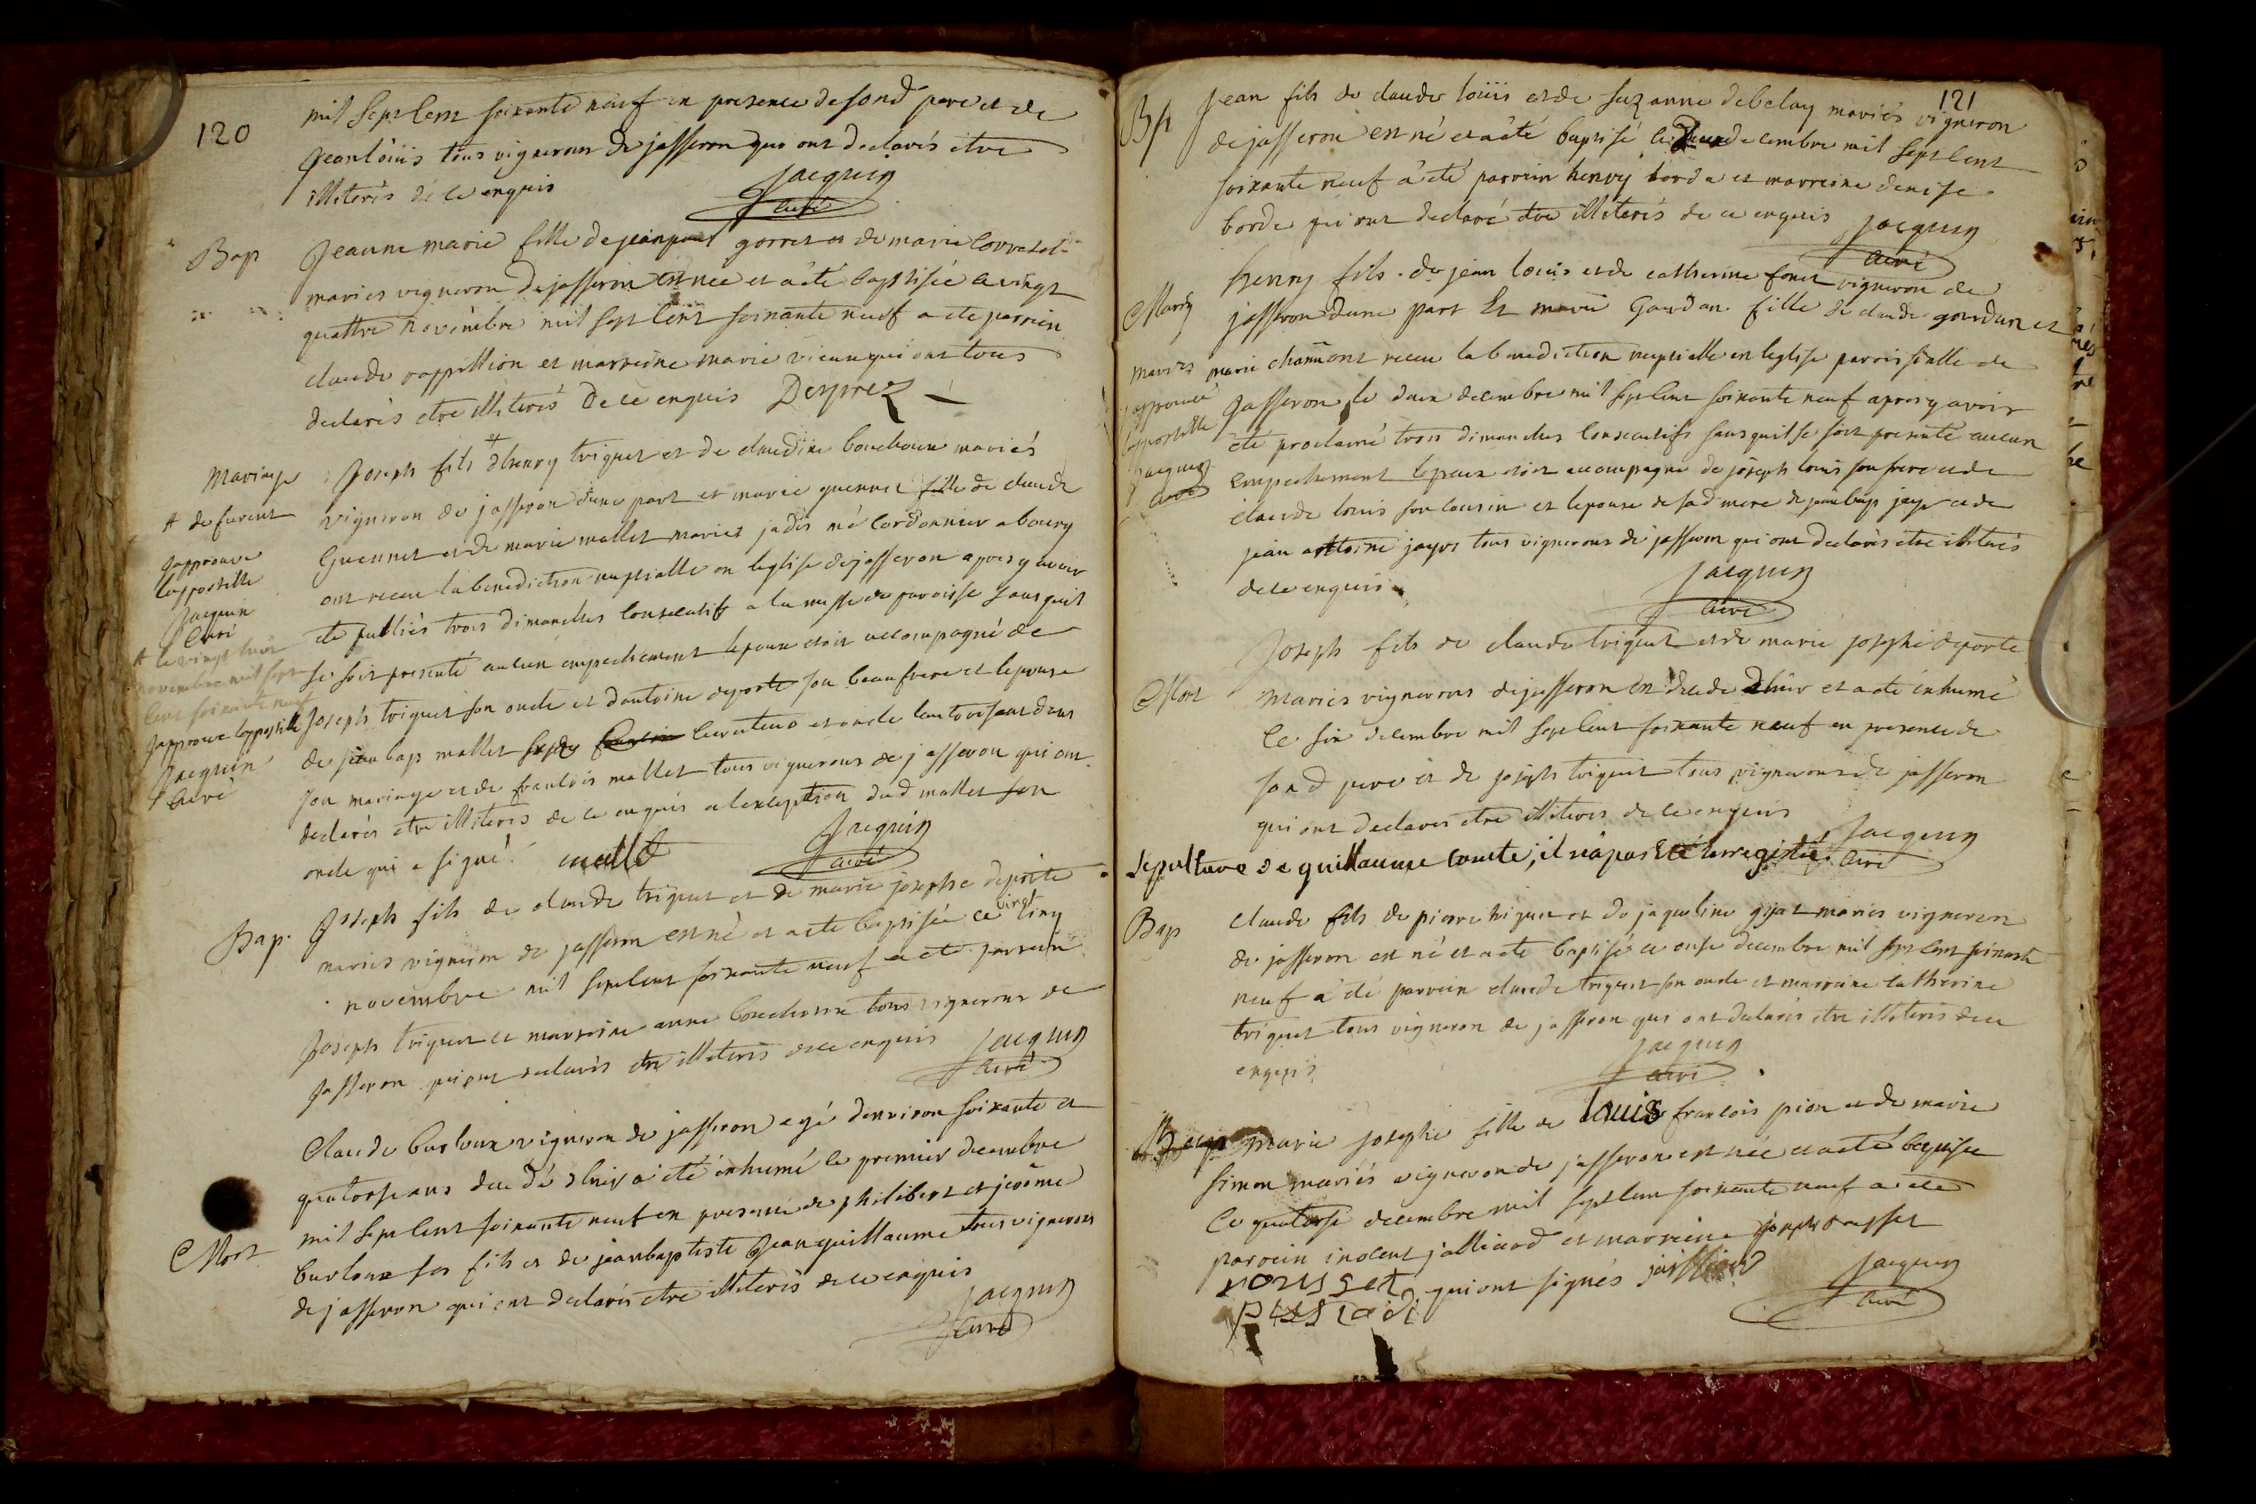 120
mil sept cent soixante neuf en presence de son d pere et de
jean loüis tous vignerons de jasseron qui ont declarés etre
illiterés de ce enquis Jacquin
curé
Bap
Jeanne marie fille de jean gorret et de marie
mariés vigneron de jasseron est née et a eté baptisée le vingt
quattre novembre mil sept cent soixante neuf a eté parrein
claude et marreine marie qui ont tous
declarés etre illiterés de ce enquis Desprez
Mariage
Joseph fils # d henry triquet et de claudine bouchoux mariés
# de furent
vigneron de jasseron dune part et marie guennet fille de claude
Guennet et de marie mallet mariés jadis cordonnier a bourg
japprouve
lappostille
Jacquin
Curé
ont receu la benediction nuptialle en leglise de jasseron apres y avoir
eté publiés trois dimanches consecutifs a la messe de paroisse sans quil
# le vingt huit
novembre mil sept
cent soixante neuf
se soit presenté aucun empechement lepoux etoit accompagné de
japprouve lappostille
Jacquin
Curé
joseph triquet son oncle et dantoine deporte son beau frere et lepouse
de jean bap mallet et oncle
son mariage et de francois mallet tous vignerons de jasseron qui ont
declarés etre illiterés de ce enquis a lexception dud mallet son
oncle qui a signé mallet Jacquin
curé
Bap.
Joseph fils de claude triquet et de marie josephe deporte
mariés vigneron de jasseron est né et a eté baptisée ce vingt cinq
novembre mil sept cent soixante neuf a eté parrein
Joseph triquet et marreine anne bouchoux tous vignerons de
Jasseron qui ont declarés etre illiterés de ce enquis Jacquin
curé
Claude burloux vigneron de jasseron agé denviron soixante et
quatorse ans decedé d hier a eté inhumé le premier decembre
mil sept cent soixante neuf en presence de philibert et jerôme
Mort
burloux ses fils et de jean baptiste jean guillaume tous vignerons
de jasseron qui ont declarés etre illiterés de ce enquis
Jacquin
curé
121
Bp
Jean fils de claude loüis et de suzanne debelay mariés vigneron
de jasseron est né et a été baptisé le deux decembre mil sept cent
soixante neuf a été parrein henry borde et marreine denise
borde qui ont declaré être illiterés de ce enquis Jacquin
curé
henry fils de jean louis et de catherine foret vigneron de
Mariag
jasseron dune part Et marie Gourdan fille de claude gourdan et
mariés
marie ont receu la benediction nuptialle en leglise paroissialle de
approuvé
lapostille
Jacquin
curé
Jasseron le deux decembre mil sept cent soixante neuf apres y avoir
été proclamé trois dimanches consecutifs sans quil se soit presenté aucun
empechement lepoux etoit accompagné de joseph louis son frere et de
claude louis son cousin et lepouse de sad mere de jean bap jayr et de
jean antoine jayr tous vignerons de jasseron qui ont declarés etre illiterés
de ce enquis Jacquin
curé
Joseph fils de claude triquet et de marie josephe deporte
Mort
mariés vignerons de jasseron en decedé d hier et a eté inhumé
le six decembre mil sept cent soixante neuf en presence de
son d pere et de joseph triquet tous vignerons de jasseron
qui ont declarés etre illiterés de ce enquis Jacquin
curé
sepulture de guillaume comte; il n'a pas été enregistré.
Bap
claude fils de pierre triquet et de jaqueline gyat mariés vigneron
de jasseron est né et a eté baptisé ce onse decembre mil sept cent soixante
neuf a été parrein claude triquet son oncle et marreine catherine
triquet tous vigneron de jasseron qui ont declarés etre illiterés de ce
enquis Jacquin
curé
Bap
Marie josephe fille de louis francois pion et de marie
simon mariés vigneron de jasseron est née et a eté baptisée
le quatorse decembre mil sept cent soixante neuf a eté
parrein inocent jalliard et marreine josephe rousset
rousset qui ont signés jalliard Jacquin
curé